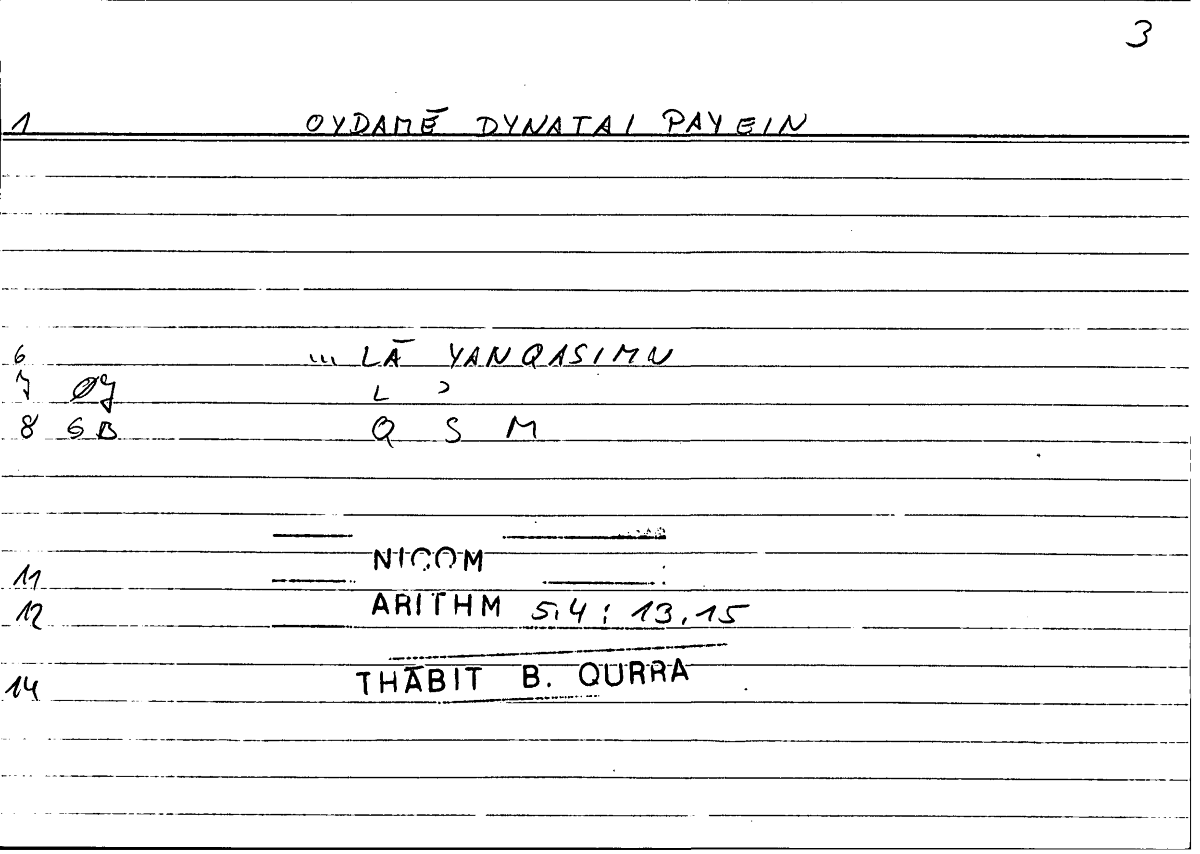 3
1 OYDAMĒ DYNATAI PAYEIN
6 ... LĀ YANQASIMU
7 ØJ L ɔ
8 GB Q S M
11 NICOM
12 ARITHM 5,4 : 13,15
14 THĀBIT B. QURRA